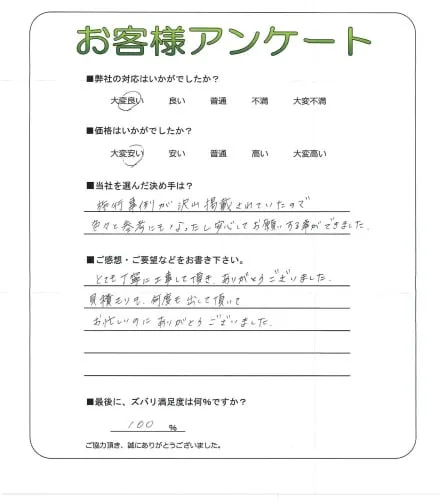 お客様アンケート
■弊社の対応はいかがでしたか?
大変良い 良い 普通 不満 大変不満
■価格はいかがでしたか?
大変安い 安い 普通 高い 大変高い
■当社を選んだ決め手は?
施行事例が沢山掲載されていたので
色々と参考にもなったし安心してお願いする事ができました。
■ご感想・ご要望などをお書き下さい。
とても丁寧に工事して頂き、ありがとうございました。
見積もりも、何度も出して頂いて
お忙しいのにありがとうございました。
■最後に、ズバリ満足度は何%ですか?
100 %
ご協力頂き、誠にありがとうございました。